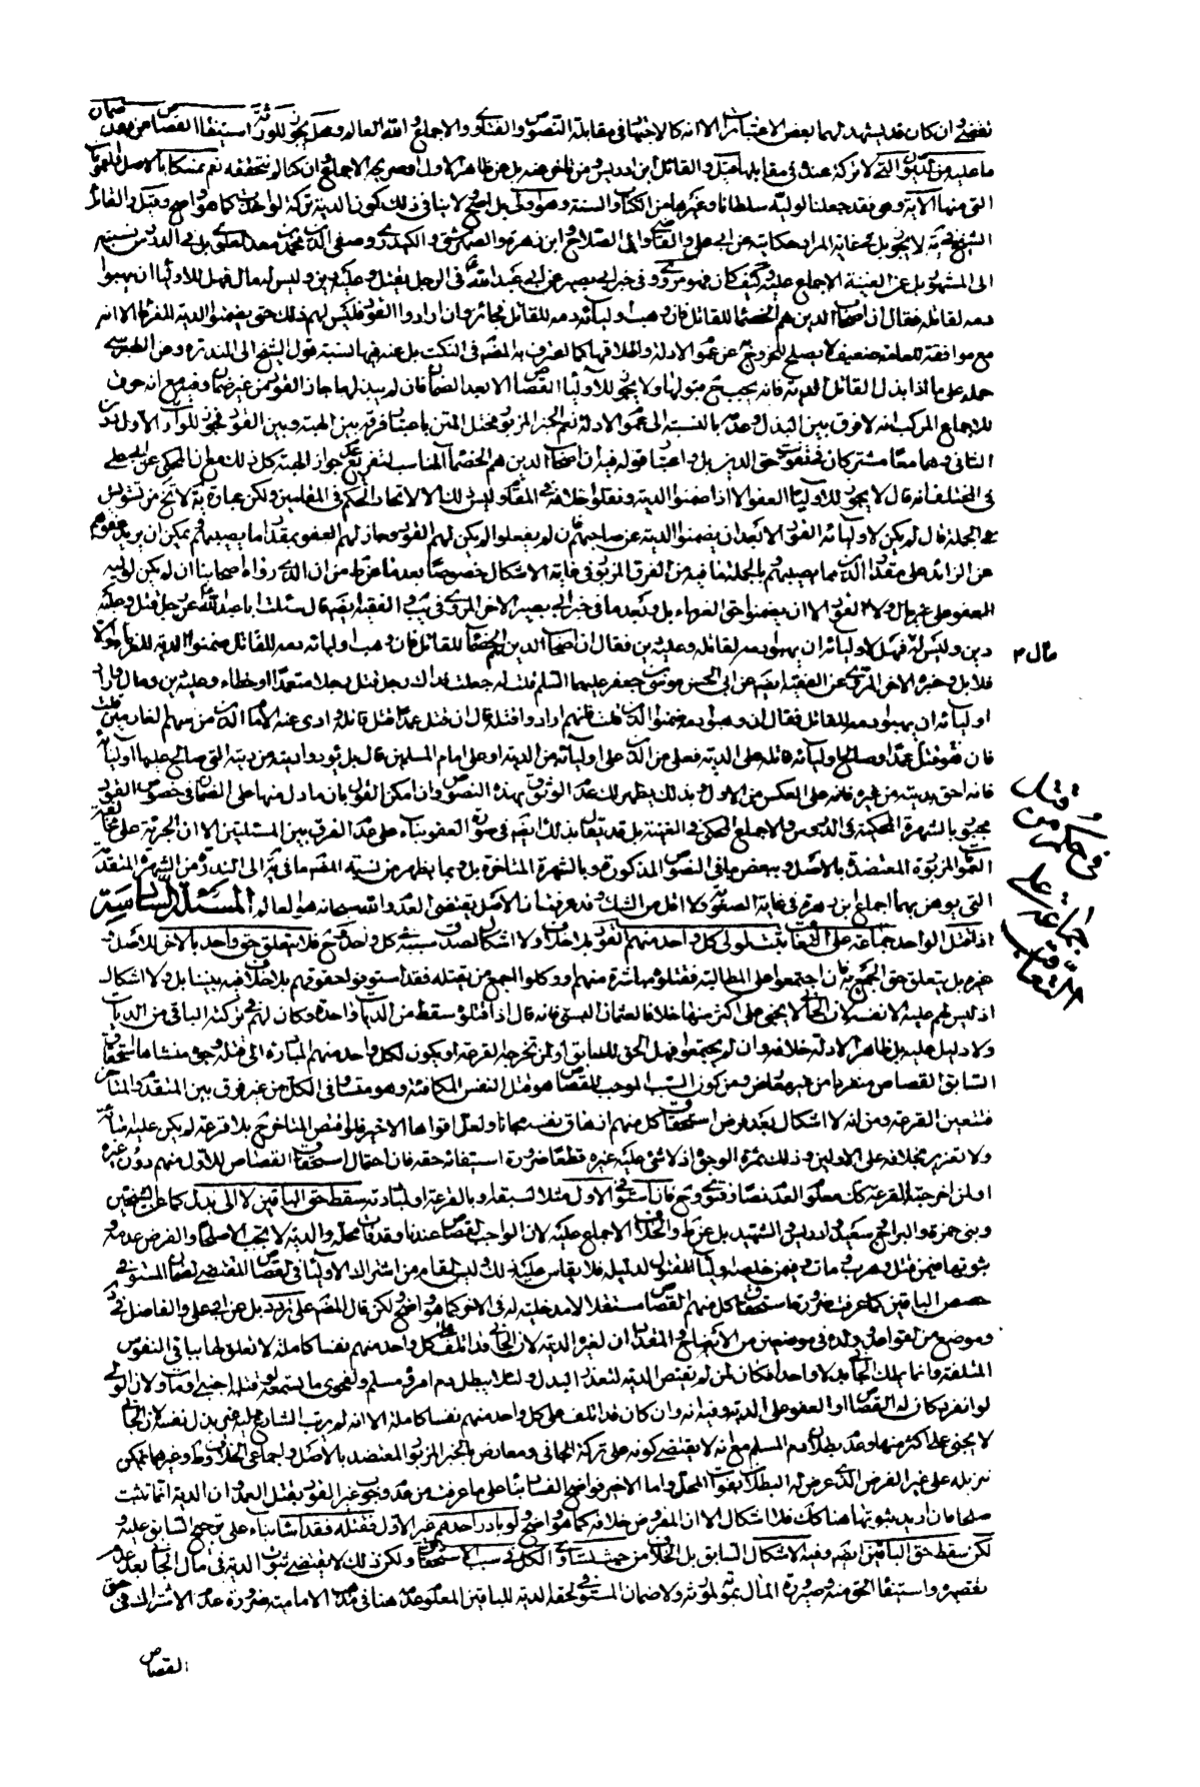 نقضى وان كان قد يشهد لهما بعض الاعتبارات الا انه كالاجتهاد فى مقابلة النصوص والفتاوى والاجماع والله العالم وهل يجوز للورثة استيفاء القصاص من دون ضمان
ما عليه من الديون التى لا تركة عنده فى مقابلها قيل والقائل ابن ادريس ومن تاخر عنه بل عن ظاهر الاول او صريحه الاجماع وان كنا لم نتحققه نعم تمسكا بالاصل والعمومات
التى منها الآية وهى فقد جعلنا لوليه سلطانا وغيرها من الكتاب والسنة وهو اولى بل اصح لا ينافى ذلك كون الدية تركة لو اخذت كما هو واضح وقيل والقائل
الشيخ فى يه لا يجوز بل غاية المراد حكايته عن ابى على والقاضى وابى الصلاح وابن زهرة والصهرشتى والكيدرى وصفى الدين محمد بن معد العلوى بل فى الدروس نسبته
الى المشهور بل عن الغنية الاجماع عليه وكيف كان فهو مروى فى خبر ابى بصير عن ابى عبد الله ع فى الرجل يقتل وعليه دين وليس له مال فهل للاولياء ان يهبوا
دمه لقاتله فقال ان اصحاب الدين هم الخصماء للقاتل فان وهب اوليائه دمه للقاتل فجائز وان ارادوا القود فليس لهم ذلك حتى يضمنوا الدية للغرماء الا انه
مع موافقته للعامة ضعيف لا يصلح للخروج عن عموم الادلة واطلاقها كما اعترف به المصنف فى النكت بل عنه فيها نسبة قول الشيخ الى الندرة وعن الطبرسى
حمله على ما اذا بذل القاتل الدية فانه يجب ح قبولها ولا يجوز للاولياء القصاص الا بعد الضمان فان لم يبذلها جاز القود من غير ضمان وفيه مع انه خرق
للاجماع المركب انه لا فرق بين البذل وعدمه بالنسبة الى عموم الادلة نعم الخبر المزبور مختل المتن باعتبار فرقه بين الهبة وبين القود فجوز للوارث الاول دون
الثانى وهما معا مشتركان فى تفويت حق الديان بل واعتبار قوله فيه ان اصحاب الدين هم الخصماء المناسب لتفريع عدم جواز الهبة كل ذلك مع ان المحكى عن ابى على
فى المختلف انه قال لا يجوز للاولياء العفو الا اذا ضمنوا الدية ونقلوا خلافه فى المقام وليس ذلك الا لاتحاد الحكم فى المقامين ولكن عبارة يه لا تخ من تشويش
فى الجملة قال لم يكن لاوليائه القود الا بعد ان يضمنوا الدية عن صاحبهم فان لم يفعلوا لم يكن لهم القود وجاز لهم العفو بمقدار ما يصيبهم ويمكن ان يريد عفوهم
عن الزائد على مقدار الدين مما يصيبهم وبالجملة ففيه من الفرق المزبور فى غاية الاشكال خصوصا بعد ما عن ط من ان الذى رواه اصحابنا انه لم يكن لوليه
العفو على غير مال ولا القود الا ان يضمنوا حق الغرماء بل وبعد ما فى خبر ابى بصير الاخر المروى فى يب والفقيه ايضه قال سئلت ابا عبد الله ع عن رجل قتل وعليه
دين وليس له مال فهل لاوليائه ان يهبوا دمه لقاتله وعليه دين فقال ان اصحاب الدين هم الخصماء للقاتل فان وهب اوليائه دمه للقاتل ضمنوا الدية للغرماء والا
فلا بل وخبره الاخر المروى عن الفقيه ايضه عن ابى الحسن موسى بن جعفر عليهما السلم قلت له جعلت فداك رجل قتل رجلا متعمدا او خطاء وعليه دين ومال فاراد
اوليائه ان يهبوا دمه للقاتل فقال ان وهبوا دمه ضمنوا الدين قلت فانهم ارادوا قتله قال ان قتل عمدا قتل قاتله وادى عنه الامام الدين من سهم الغارمين قلت
فان هو قتل عمدا وصالح اوليائه قاتله على الدية فعلى من الدين على اوليائه من الدية او على امام المسلمين قال بل يؤدوا دينه من ديته التى صالح عليها اوليائه
فانه احق بديته من غيره فانه على العكس من الاول وبذلك يظهر لك عدم الوثوق بهذه النصوص وان امكن القول بان ما دل منها على الضمان فى خصوص القود
مجبور بالشهرة المحكية فى الدروس والاجماع المحكى فى الغنية بل قد يتعدى بذلك ايضه فى صورة العفو بناء على عدم الفرق بين المسئلتين الا ان الجرئة على مخالفة
العمومات المزبورة المعتضدة بالاصل وبعض ما فى النصوص المذكورة وبالشهرة المتاخرة بل وبما يظهر من نسبة المصنف ما فى يه الى الندرة من الشهرة المتقدمة
التى يوهن بهما اجماع ابن زهرة فى غاية الصعوبة ولا اقل من الشك وقد عرفت ان الاصل يقتضى العدم والله سبحانه هو العالم المسئلة السادسة
اذا قتل الواحد جماعة على التعاقب ثبت لولى كل واحد منهم القود بلا خلاف ولا اشكال لصدق سببيته كل واحد ح فلا يتعلق حق واحد بالاخر للاصل و
غيره بل يتعلق حق الجميع به فان اجتمعوا على المطالبة فقتلوه مباشرة منهم او وكلوا الجمع من يقتله فقد استوفوا حقوقهم بلا خلاف فيه بيننا بل ولا اشكال
اذ ليس لهم عليه الا نفسه لان الجانى لا يجنى على اكثر منها خلافا لعثمان البستى فانه قال اذا قتلوه سقط من الديات واحدة وكان لهم فى تركته الباقى من الديات
ولا دليل عليه بل ظاهر الادلة خلافه وان لم يجتمعوا فهل الحق للسابق او لمن تخرجه القرعة او يكون لكل واحد منهم المبادرة الى قتله وجوه منشاها استحقاق
السابق القصاص منفردا من غير معارض ومن كون السبب الموجب للقصاص هو قتل النفس المكافئة وهو متساو فى الكل من غير فرق بين المتقدم والمتاخر
فتتعين القرعة ومن انه لا اشكال بعد فرض استحقاق كل منهم ازهاق نفسه مجانا ولعل اقواها الاخير فلو اقتص المتاخر ح بلا قرعة لم يكن عليه شئ
ولا تعزير بخلافه على الاولين وذلك ثمرة الوجوه اذ لا شئ عليه غيره قطعا ضرورة استيفائه حقه فان احتمال استحقاق القصاص للاول منهم دون غيره
او لمن اخرجته القرعة كك معلوم العدم نصا وفتوى وح فان استوفى الاول مثلا لسبقه او بالقرعة او لمبادرته سقط حق الباقين لا الى بدل كما عن الشيخين
وبنى حمزة والبراج وسعيد وادريس والشهيد بل عن ط والخلاف الاجماع عليه لان الواجب القصاص عندنا وقد فات محله والدية لا تجب الا صلحا والفرض عدمه و
ثبوتها فيمن قتل وهرب ومات وفيمن خلصه اولياء المقتول لدليله فلا يقاس عليه ذلك وليس المقام من اشتراك الاولياء فى القصاص المقتضى لضمان المستوفى
حصص الباقين كما عرفت ضرورة استحقاق كل منهم القصاص مستقلا لا مدخلية له فى الاخر كما هو واضح ولكن قال المصنف على تردد بل عن ابى على والفاضل فى
وموضع من القواعد وولده فى موضعين من الايضاح والمقداد ان لغيره الدية لان الجانى قد اتلف على كل واحد منهم نفسا كاملة لا تعلق لها بباقى النفوس
المتلفة وانما يملك الجانى بدلا واحدا فكان لمن لم يقتص الدية لتعذر البدل ولئلا يبطل دم امرؤ مسلم ولفحوى ما يستمعه لو قتله اجنبى او مات ولان الولى
لو انفرد كان له القصاص او العفو على الدية وفيه انه وان كان قد اتلف على كل واحد منهم نفسا كاملة الا انه لم يرتب الشارع عليه غير بذل نفسه لان الجانى
لا يجنى على اكثر منها وعدم بطلان دم المسلم مع انه لا يقتضى كونه على تركة الجانى ومعارض بالخبر المزبور المعتضد بالاصل واجماعى الخلاف وط وغيرهما يمكن
تنزيله على غير الفرض الذى عرض له البطلان بفوات المحل واما الاخير فواضح الفساد بناء على ما عرفت من عدم وجوب غير القود بقتل العمد وان الدية انما تثبت
صلحا فان اريد ثبوتها هنا كك فلا اشكال الا ان المفروض خلافه كما هو واضح ولو بادر احدهم غير الاول فقتله فقد اساء بناء على ترجيح السابق عليه و
لكن سقط حق الباقين ايضه وفيه الاشكال السابق بل الخلاف من حيث تساوى الكل فى سبب الاستحقاق ولكن ذلك لا يقتضى ثبوت الدية فى مال الجانى بعد عدم
تقصيره واستيفاء الحق منه وصيرورة المال بموته لورثته ولا ضمان المستوفى لحقه الدية للباقين المعلوم عدمه هنا فى مذهب الامامية ضرورة عدم الاشتراك فى حق
القصاص
مال م
فى حكم من قتل
جماعة على
التعاقب